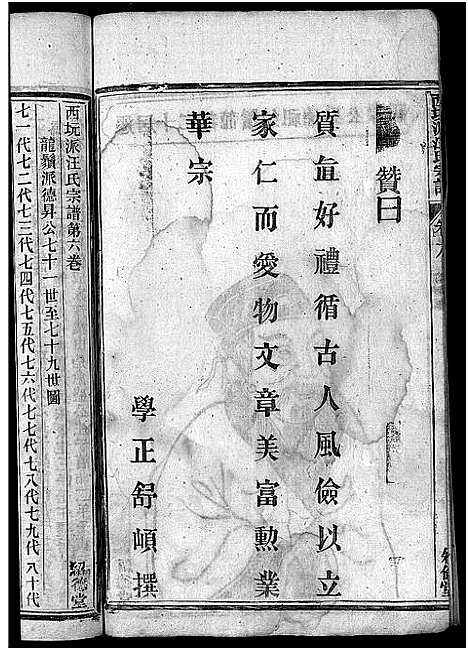 贊曰
質直好禮循古人風儉以立
家仁而愛物文章美富勳業
華宗
學正舒頔撰
西玩派汪氏宗譜第六卷
龍𩓐派德昇公七十一世至七十九世圖
七一代七二代七三代七四代七五代七六代七七代七八代七九代八十代
紹徳堂